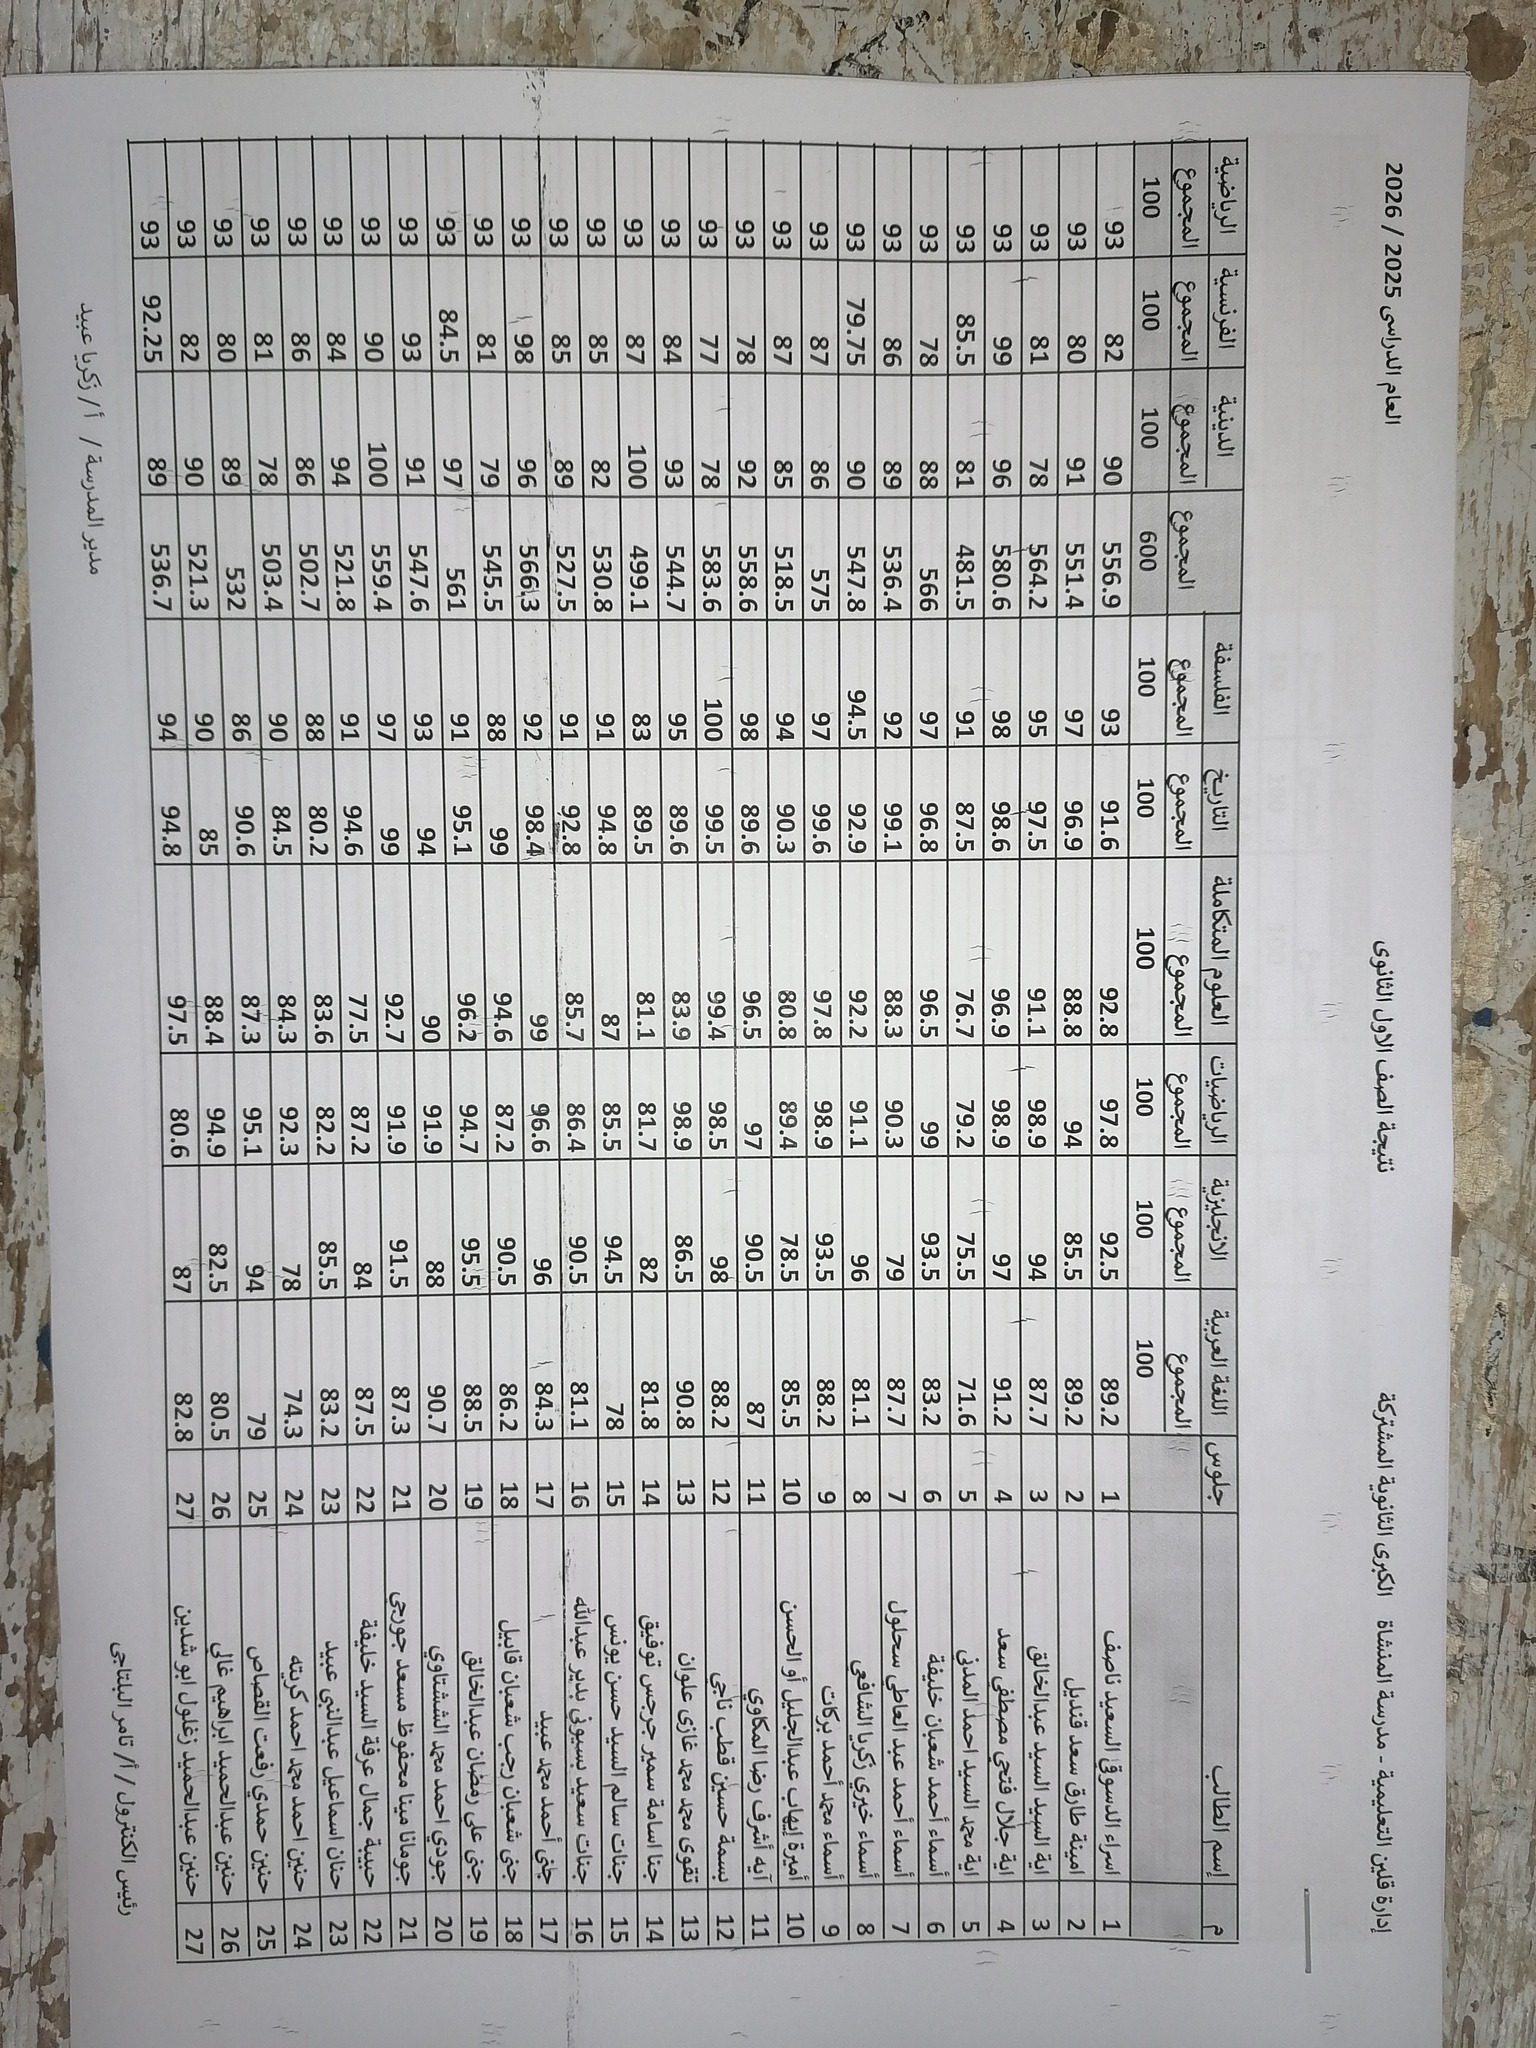 إدارة قلين التعليمية - مدرسة المنشاة الكبرى الثانوية المشتركة نتيجة الصف الاول الثانوى العام الدراسى 2025 / 2026
م إسم الطالب جلوس اللغة العربية الانجليزية الرياضيات العلوم المتكاملة التاريخ الفلسفة المجموع الدينية الفرنسية الرياضية
المجموع المجموع المجموع المجموع المجموع المجموع المجموع المجموع المجموع
100 100 100 100 100 100 600 100 100 100
1 اسراء الدسوقي السعيد ناصف 1 89.2 92.5 97.8 92.8 91.6 93 556.9 90 82 93
2 امينة طارق سعد قنديل 2 89.2 85.5 94 88.8 96.9 97 551.4 91 80 93
3 اية السيد السيد عبدالخالق 3 87.7 94 98.9 91.1 97.5 95 564.2 78 81 93
4 اية جلال فتحي مصطفى سعد 4 91.2 97 98.9 96.9 98.6 98 580.6 96 99 93
5 اية محمد السيد احمد المدنى 5 71.6 75.5 79.2 76.7 87.5 91 481.5 81 85.5 93
6 أسماء أحمد شعبان خليفة 6 83.2 93.5 99 96.5 96.8 97 566 88 78 93
7 أسماء أحمد عبد العاطي سحلول 7 87.7 79 90.3 88.3 99.1 92 536.4 89 86 93
8 أسماء خيري زكريا الشافعي 8 81.1 96 91.1 92.2 92.9 94.5 547.8 90 79.75 93
9 أسماء محمد أحمد بركات 9 88.2 93.5 98.9 97.8 99.6 97 575 86 87 93
10 أميرة إيهاب عبدالجليل أو الحسن 10 85.5 78.5 89.4 80.8 90.3 94 518.5 85 87 93
11 آيه أشرف رضا المكاوي 11 87 90.5 97 96.5 89.6 98 558.6 92 78 93
12 بسمة حسين قطب ناجي 12 88.2 98 98.5 99.4 99.5 100 583.6 78 77 93
13 تقوى محمد غازى علوان 13 90.8 86.5 98.9 83.9 89.6 95 544.7 93 84 93
14 جنا اسامة سمير جرجس توفيق 14 81.8 82 81.7 81.1 89.5 83 499.1 100 87 93
15 جنات سالم السيد حسن يونس 15 78 94.5 85.5 87 94.8 91 530.8 82 85 93
16 جنات سعيد بسيوني بدير عبدالله 16 81.1 90.5 86.4 85.7 92.8 91 527.5 89 85 93
17 جنى أحمد محمد عبيد 17 84.3 96 96.6 99 98.4 92 566.3 96 98 93
18 جنى شعبان رجب شعبان قابيل 18 86.2 90.5 87.2 94.6 99 88 545.5 79 81 93
19 جنى على رمضان عبدالخالق 19 88.5 95.5 94.7 96.2 95.1 91 561 97 84.5 93
20 جودي احمد محمد الششتاوي 20 90.7 88 91.9 90 94 93 547.6 91 93 93
21 جومانا مينا محفوظ مسعد جورجى 21 87.3 91.5 91.9 92.7 99 97 559.4 100 90 93
22 حبيبة جمال عرفة السيد خليفة 22 87.5 84 87.2 77.5 94.6 91 521.8 94 84 93
23 حنان اسماعيل عبدالنبي عبيد 23 83.2 85.5 82.2 83.6 80.2 88 502.7 86 86 93
24 حنين احمد محمد احمد كريته 24 74.3 78 92.3 84.3 84.5 90 503.4 78 81 93
25 حنين حمدي رفعت القصاص 25 79 94 95.1 87.3 90.6 86 532 89 80 93
26 حنين عبدالحميد ابراهيم غالى 26 80.5 82.5 94.9 88.4 85 90 521.3 90 82 93
27 حنين عبدالحميد زغلول ابو شدين 27 82.8 87 80.6 97.5 94.8 94 536.7 89 92.25 93
رئيس الكنترول / أ/ تامر البلتاجى مدير المدرسة / أ/ زكريا عبيد